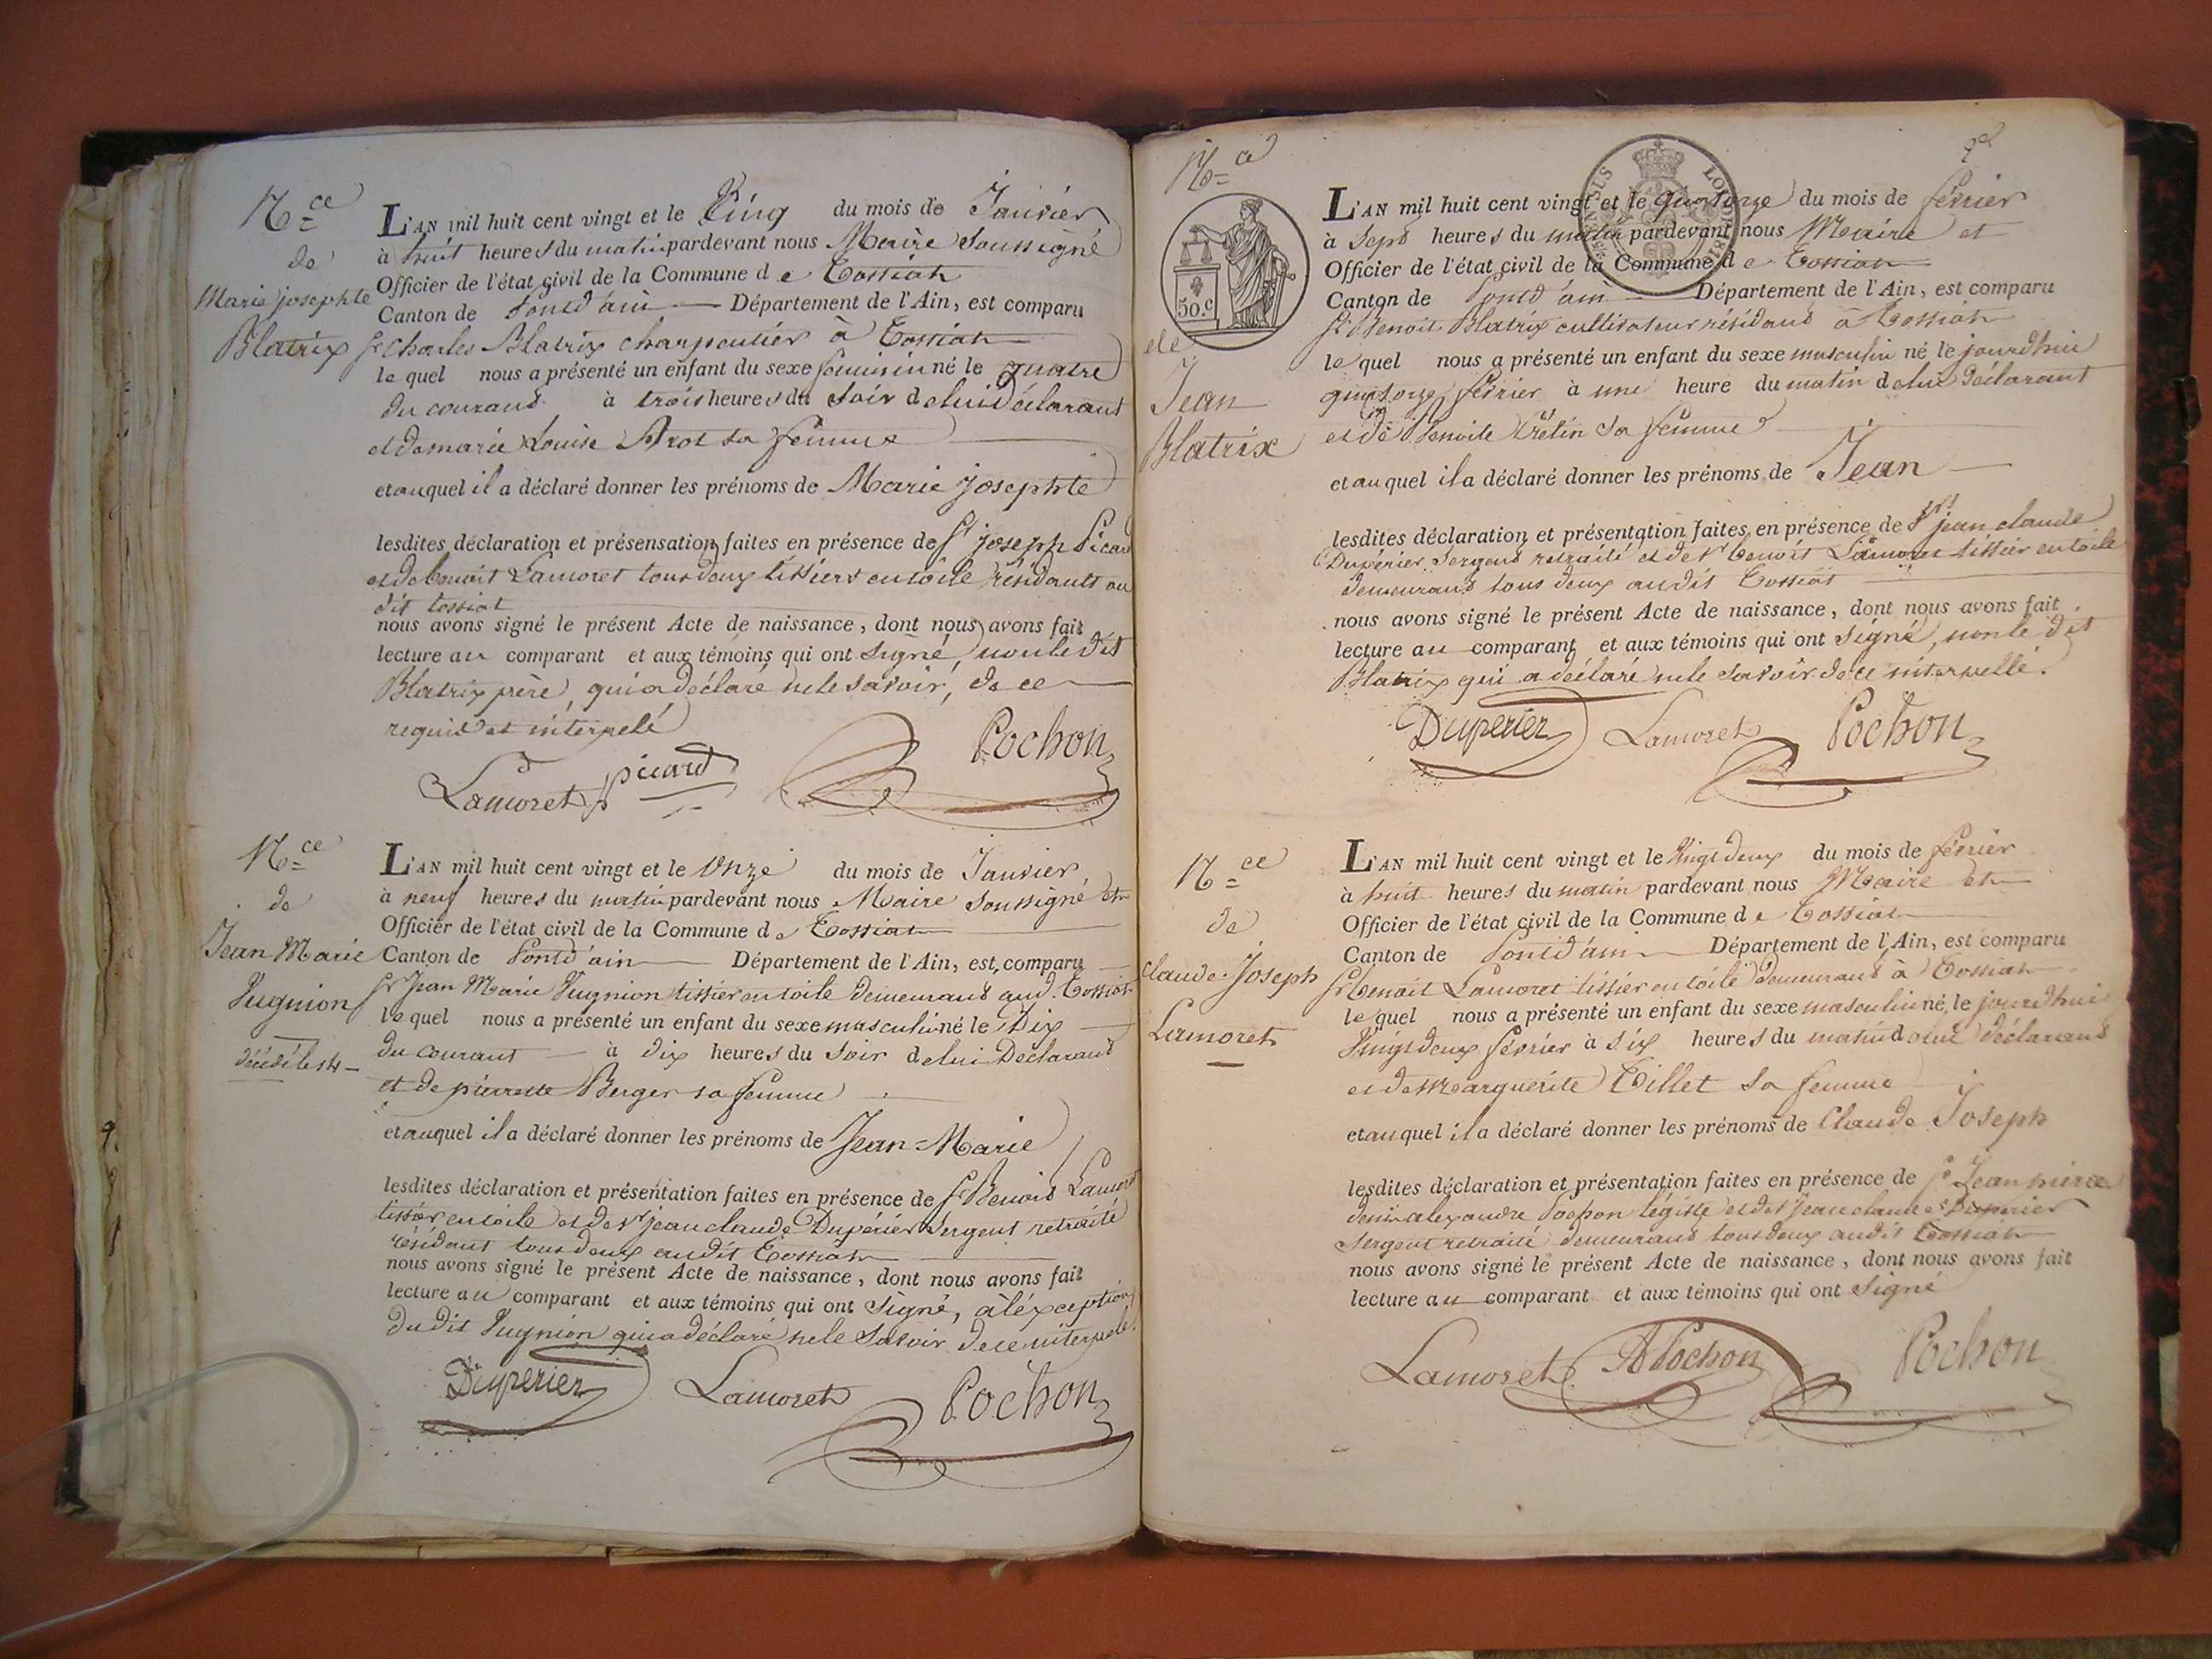 Nce
de
Marie josephte
Blatrix
L'AN mil huit cent vingt et le Cinq du mois de Janvier
à huit heures du matin pardevant nous Maire Soussigné
Officier de l'état civil de la Commune de Tossiat
Canton de Pontd'ain Département de l'Ain, est comparu
Sr Charles Blatrix charpentier à Tossiat
le quel nous a présenté un enfant du sexe féminin né le quatre
du courant à trois heures du soir de lui Déclarant
et de marie Louise Arot sa femme
et auquel il a déclaré donner les prénoms de Marie Josephte
lesdites déclaration et présensation faites en présence de Sr joseph Picard
et de benoit Lamoret tous deux tissiers en toile résidants au
dit tossiat
nous avons signé le présent Acte de naissance, dont nous avons fait
lecture au comparant et aux témoins qui ont signé, non le dit
Blatrix père, qui a déclaré ne le savoir, de ce
requis et interpelé
Lamoret picard Pochon
Nce
de
Jean Marie
Pugnion
décédé le 14
L'AN mil huit cent vingt et le Onze du mois de Janvier
à neuf heures du matin pardevant nous Maire Soussigné et
Officier de l'état civil de la Commune de Tossiat
Canton de Pontd'ain Département de l'Ain, est comparu
Sr Jean Marie Pugnion tissier en toile demeurant aud. Tossiat
le quel nous a présenté un enfant du sexe masculin né le Dix
du courant à dix heures du soir de lui Déclarant
et de pierrette Berger sa femme
et auquel il a déclaré donner les prénoms de Jean-Marie
lesdites déclaration et présentation faites en présence de Sr Benoit Lamoret
tissier en toile et de Sr jean claude Dupérier Sergent retraité
résidant tous deux audit Tossiat
nous avons signé le présent Acte de naissance, dont nous avons fait
lecture au comparant et aux témoins qui ont signé, à l'éxception
du dit Pugnion qui a déclaré ne le savoir de ce interpelé.
Duperier Lamoret Pochon
Nce
50.c
de
Jean
Blatrix
L'AN mil huit cent vingt et le quatorze du mois de février
à Sept heures du matin pardevant nous Maire et
Officier de l'état civil de la Commune de Tossiat
Canton de Pontd'ain Département de l'Ain, est comparu
Sr Benoit Blatrix cultivateur résidant à Tossiat
le quel nous a présenté un enfant du sexe masculin né le jourdhui
quatorze février à une heure du matin de lui déclarant
et de Benoite Crétin sa femme
et au quel il a déclaré donner les prénoms de Jean
lesdites déclaration et présentation faites en présence de Sr jean claude
Dupérier Sergent retraité et de Sr benoit Lamoret tissier en toile
demeurant tous deux audit Tossiat
nous avons signé le présent Acte de naissance, dont nous avons fait
lecture au comparant et aux témoins qui ont signé, non le dit
Blatrix qui a déclaré ne le savoir de ce interpellé.
Duperier Lamoret Pochon
Nce
de
claude Joseph
Lamoret
L'AN mil huit cent vingt et le Vingt deux du mois de février
à huit heures du matin pardevant nous Maire et
Officier de l'état civil de la Commune de Tossiat
Canton de Pontd'ain Département de l'Ain, est comparu
Sr benoit Lamoret tissier en toile demeurant à Tossiat
le quel nous a présenté un enfant du sexe masculin né le jourdhui
Vingt deux février à six heures du matin de lui déclarant
et de Marguerite Tillet sa femme
et au quel il a déclaré donner les prénoms de Claude Joseph
lesdites déclaration et présentation faites en présence de Sr Jean pierre
denis alexandre Pochon légiste et de Sr jean claude Duperier
Sergent retraité demeurant tous deux audit Tossiat
nous avons signé le présent Acte de naissance, dont nous avons fait
lecture au comparant et aux témoins qui ont signé
Lamoret APochon Pochon